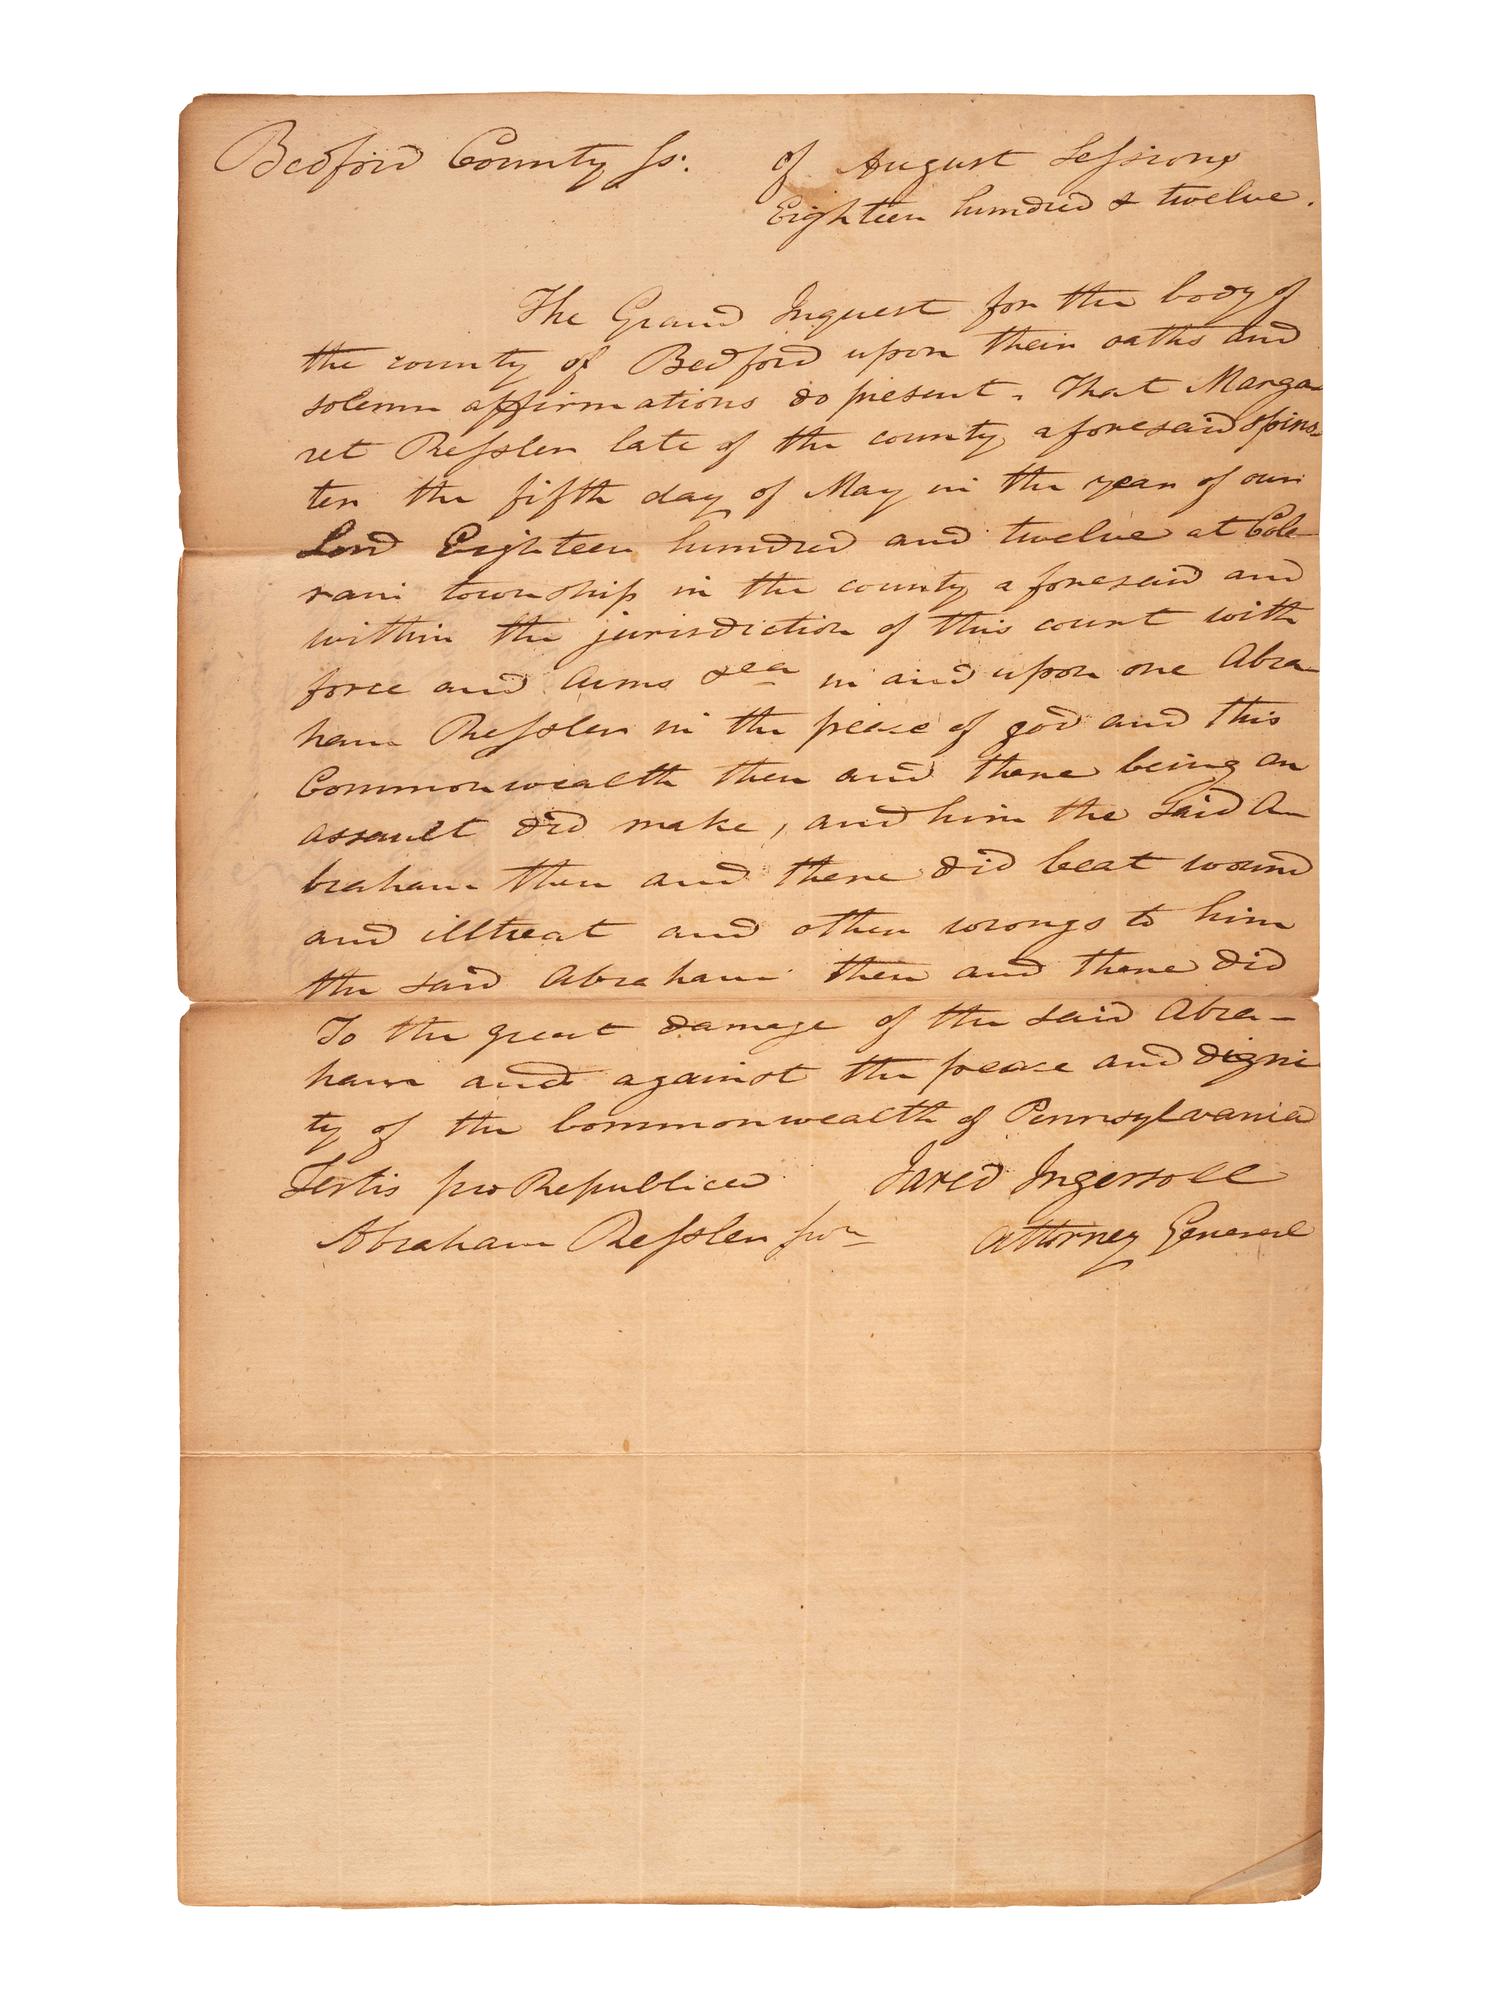 Bedford County Ss: of August Sessions
Eighteen hundred & twelve.
The Grand Inquest for the body of
the county of Bedford upon their oaths and
solemn affirmations do present, That Marga-
ret Ressler late of the county aforesaid spins-
ter the fifth day of May in the year of our
Lord Eighteen hundred and twelve at Cole-
rain township in the county aforesaid and
within the jurisdiction of this court with
force and Arms &ca in and upon one Abra-
ham Ressler in the peace of god and this
Commonwealth then and there being an
assault did make, and him the said A-
braham then and there did beat wound
and illtreat and other wrongs to him
the said Abraham then and there did
To the great damage of the said Abra-
ham and against the peace and digni
ty of the Commonwealth of Pennsylvania
Testis pro Republica Jared Ingersoll
Abraham Ressler Attorney General